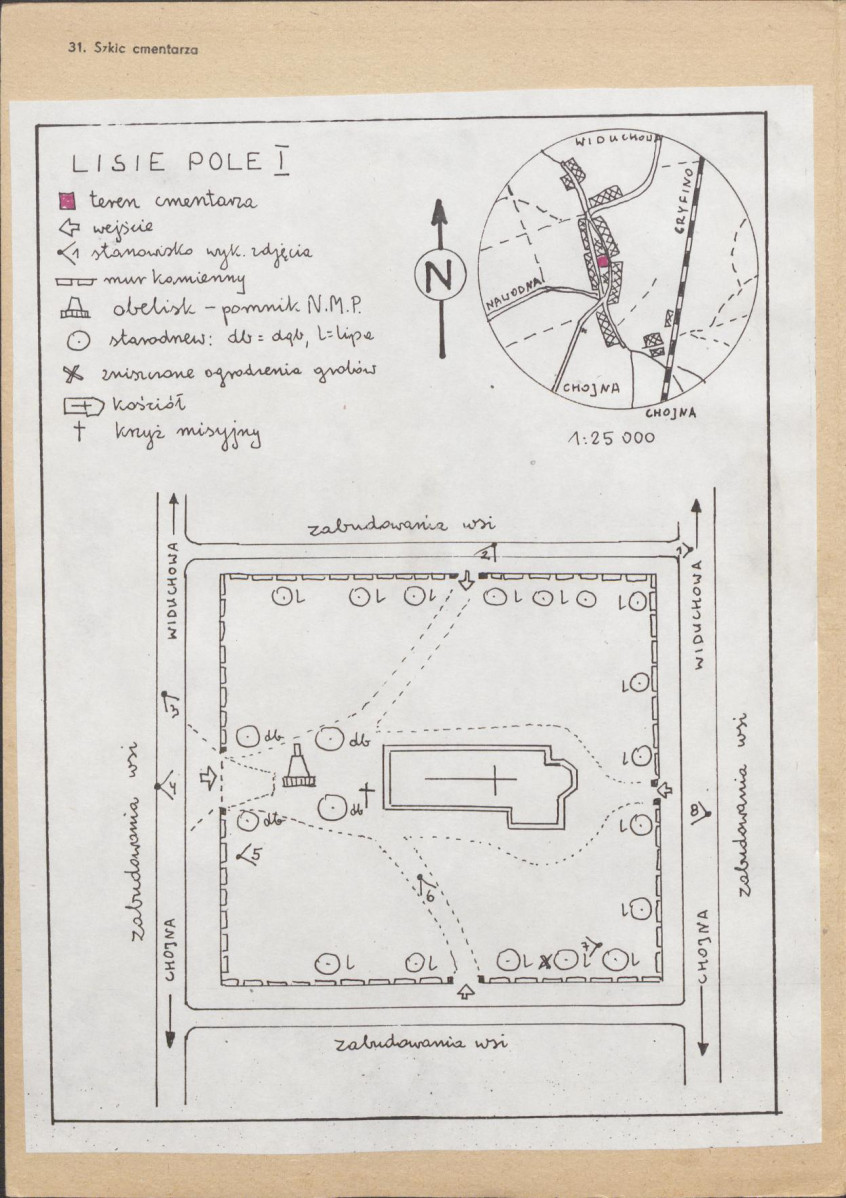 31. Szkic cmentarza
LISIE POLE I
teren cmentarza
wejście
1 stanowisko wyk. zdjęcia
mur kamienny
obelisk – pomnik N.M.P.
starodrzew: db = dąb, l = lipa
zniszczone ogrodzenia grobów
kościół
krzyż misyjny
N
WIDUCHOWA
GRYFINO
NAWODNA
CHOJNA
CHOJNA
1:25 000
zabudowania wsi
WIDUCHOWA
WIDUCHOWA
2
1
l
l
l
l
l
l
l
l
db
db
3
4
db
db
8
l
5
6
l
l
l
l
7
l
l
zabudowania wsi
zabudowania wsi
CHOJNA
CHOJNA
zabudowania wsi